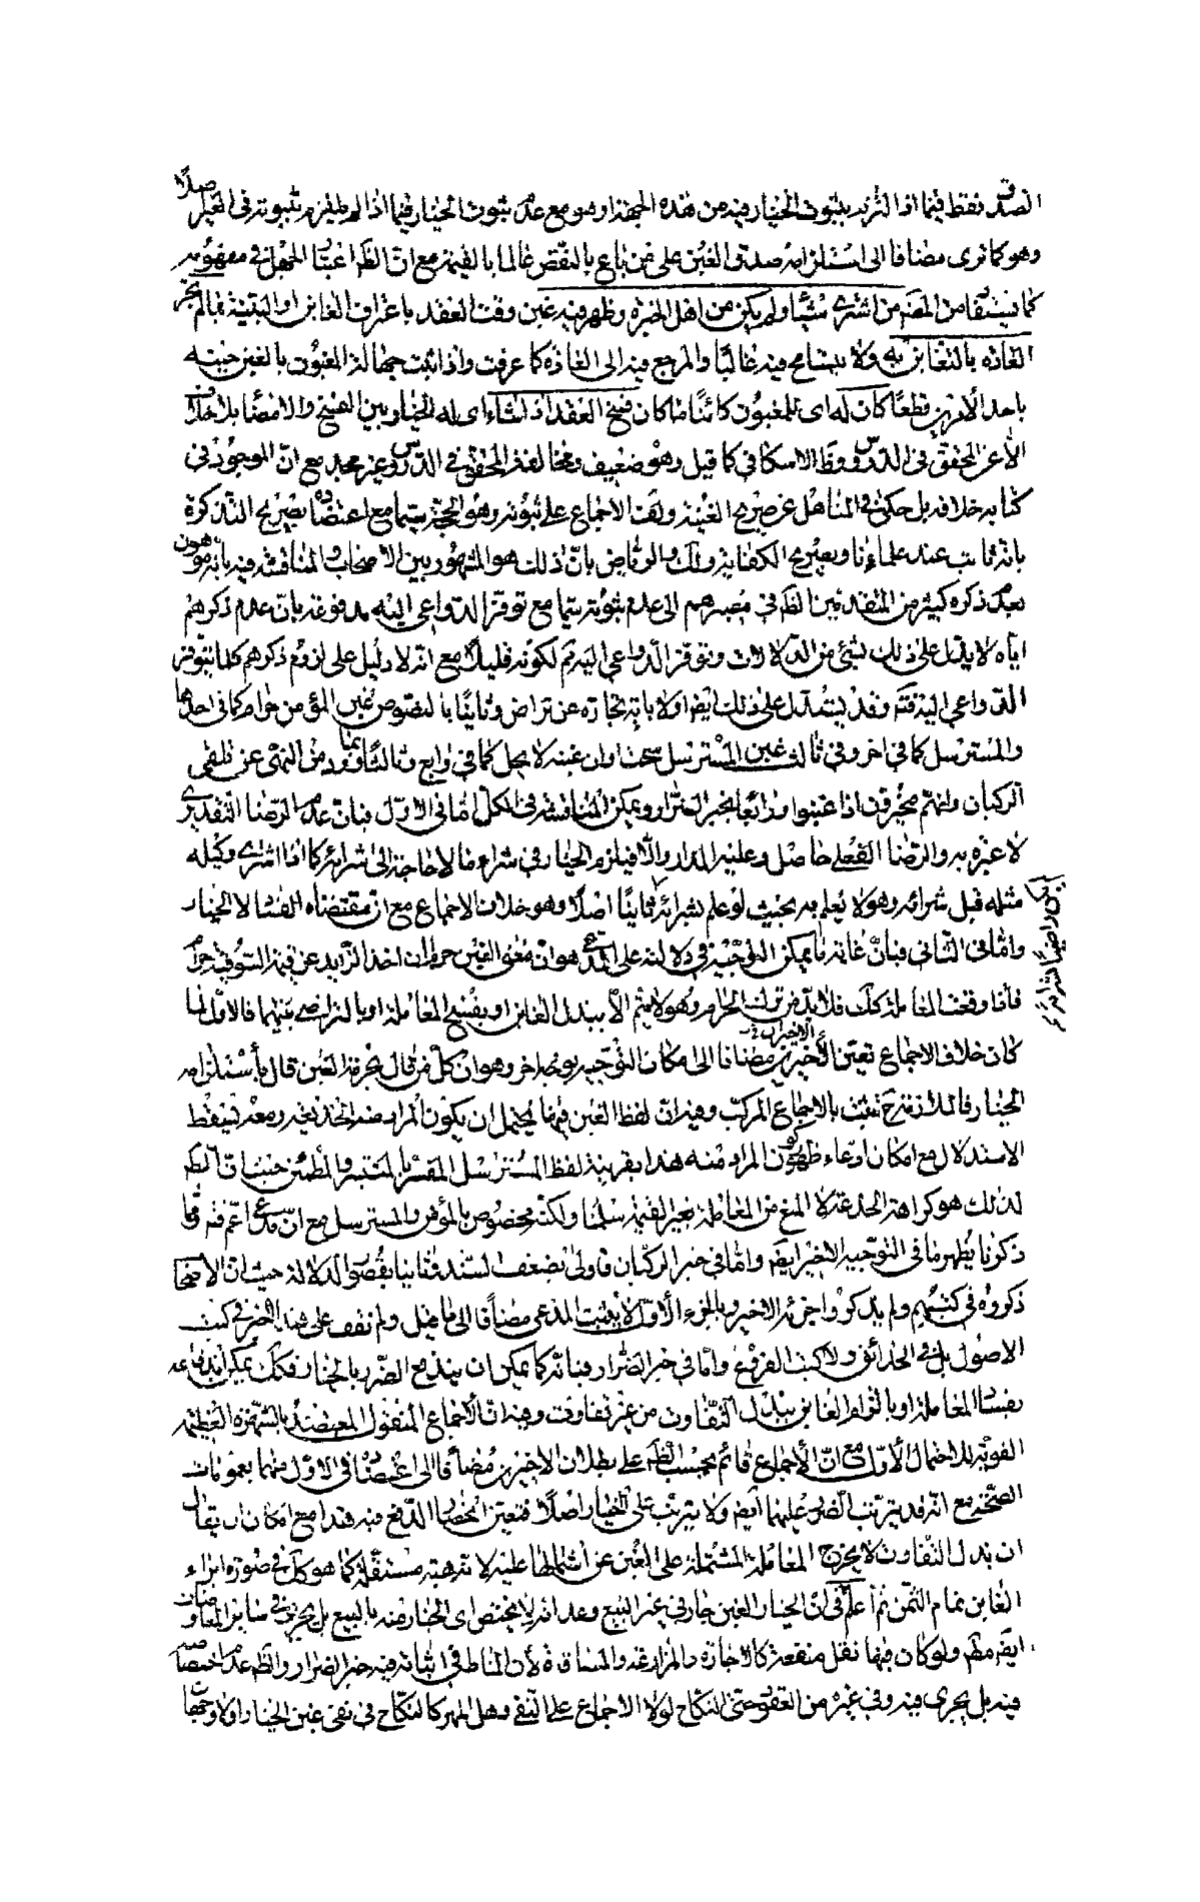 الصدق فقط فيما اذا التزيد بثبوت الخيار فيه من هذه الجهة او هو مع عدم ثبوت الخيار فيما اذا لم يلتزم ثبوته فى الغير اصلا
وهو كما ترى مضافا الى استلزامه صدق الغبن على من باع بالنقص عالما بالقيمة مع ان الظ اعتبار الجهل فى مفهومه
كما فيستفاد من المص من اشترى شيئا ولم يكن من اهل الخبرة وظهر فيه غبن وقت العقد باعتراف الغابن او البينة بما لم تجر
العادة بالتغابن به ولا يتسامح فيه غالبا والمرجع فيه الى العادة كما عرفت واذا ثبت جهالة المغبون بالغبن حينه
باحد الامرين قطعا كان له اى للمغبون كائنا ما كان فسخ العقد اذ لشاء اى له الخيار بين الفسخ والامضاء بلا خلاف
الا عن المحقق فى الدرس وظ الاسكافى كما قيل وهو ضعيف ومخالفة المحقق فى الدرس غير مجد مع ان الموجود فى
كتابه خلافه بل حكى فى المناهل عن صريح الغنية ولف الاجماع على ثبوته وهو الحجة سيما مع اعتضاده بصريح التذكرة
بانه ثابت عند علماءنا وبصريح الكفاية ولك والرياض بان ذلك هو المشهور بين الاصحاب والمناقشة فيه بانه موهون
بعدم ذكره كثير من المتقدمين الظ فى مصيرهم الى عدم ثبوته سيما مع توفر الدواعى اليه مدفوعة بان عدم ذكرهم
اياه لا يدل على ذلك لشئ من الدلالات وتوفر الدواعى اليه ثم لكونه قليلا مع انه لا دليل على لزوم ذكرهم كلما تتوفر
الدواعى اليه فت وقد يستدل على ذلك ايضا اولا بانه تجارة عن تراض وثانيا بالنصوص غبن المؤمن حرام كما فى احدها
والمسترسل كما فى اخر وفى ثالث غبن المسترسل سحت او ان غبنه لا يحل كما فى رابع وثالثا بما ورد من النهى عن تلقى
الركبان وانهم مخيرون اذا غبنوا ورابعا بخبر الضرار ويمكن المناقشة فى الكل اما فى الاول فبان عدم الرضا التقديرى
لا عبرة به والرضا الفعلى حاصل وعليه المدار والا فيلزم الخيار فى شراء ما لا حاجة الى شرائه كما اذا اشترى وكيله
مثله قبل شرائه وهو لا يعلم به بحيث لو علم بشرائه ثانيا اصلا وهو خلاف الاجماع مع ان مقتضاه الفساد لا الخيار
واما فى الثانى فبان غاية ما يمكن التوجيه فى دلالته على المدعى هو ان معنى الغبن حرام ان اخذ الزايد عن قيمة السوقية حرام
فاذا وقعت المعاملة كك فلا بد من ترك الحرام وهو لا يتم الا ببذل الغابن او بفسخ المعاملة او بالتراضى بينهما فالاول لما
كان خلاف الاجماع تعين الاخيرين مضافا الى امكان التوجيه بوجه اخر وهو ان كل من قال بحرمة الغبن قال باستلزامه
الخيار فالملازمة ح تثبت بالاجماع المركب وفيه ان لفظ الغبن فيها يحتمل ان يكون المراد منه الخديعة ومعه يسقط
الاستدلال مع امكان ادعاء ظهور كون المراد منه هذا بقرينة لفظ المسترسل المفسر بالمستبصر والمطمئن
لذلك هو كراهة الخدعة لا المنع من المعاملة بغير القيمة سلمنا ولكنه مخصوص بالمؤمن والمسترسل مع ان المدعى اعم فت ومما
ذكرنا يظهر ما فى التوجيه الاخير ايضا واما فى خبر الركبان فاولا بضعف السند وثانيا بقصور الدلالة حيث ان الاصحاب
ذكروه فى كتبهم ولم يذكروا جزئه الاخير وبالجزء الاول لا يثبت المدعى مضافا الى ما قيل ولم نقف على هذا الخبر فى كتب
الاصول بل فى الحدائق ولا كتب الفروع واما فى خبر الضرار فبانه كما يمكن ان يندفع الضرر بالخيار فكك يمكن اندفاعه
بفساد المعاملة او بالزام الغابن ببذل التفاوت من غير تفاوت وفيه ان الاجماع المنقول المعتضد بالشهرة العظيمة
القوية للاحتمال الاول مع ان الاجماع قائم بحسب الظ على بطلان الاخيرين مضافا الى اعتضاده فى الاول منهما بعمومات
الصحة مع انه قد يترتب الضرر عليهما ايضا ولا يترتب على الخيار اصلا فتعين انحصار الدفع فيه هذا مع امكان ان يقال
ان بذل التفاوت لا يخرج المعاملة المشتملة على الغبن عن اشتمالها عليه لانه هبة مستقلة كما هو كك فى صورة ابراء
الغابن تمام الثمن ثم اعلم فى ان الخيار الغبن جار فى غير البيع وعدمه انه لا يختص اى الخيار منه بالبيع بل يجرى فى سائر المعاوضات
ايضا مطم ولو كان فيها نقل منفعة كالاجارة والمزارعة والمساقاة لان المناط فى اثباته فيه خبر الضرار والظ عدم اختصاصه
فيه بل يجرى فيه وفى غيره من العقود حتى النكاح لولا الاجماع على النفى وهل المهر كالنكاح فى نفى غبن الخيار اولا وجهان